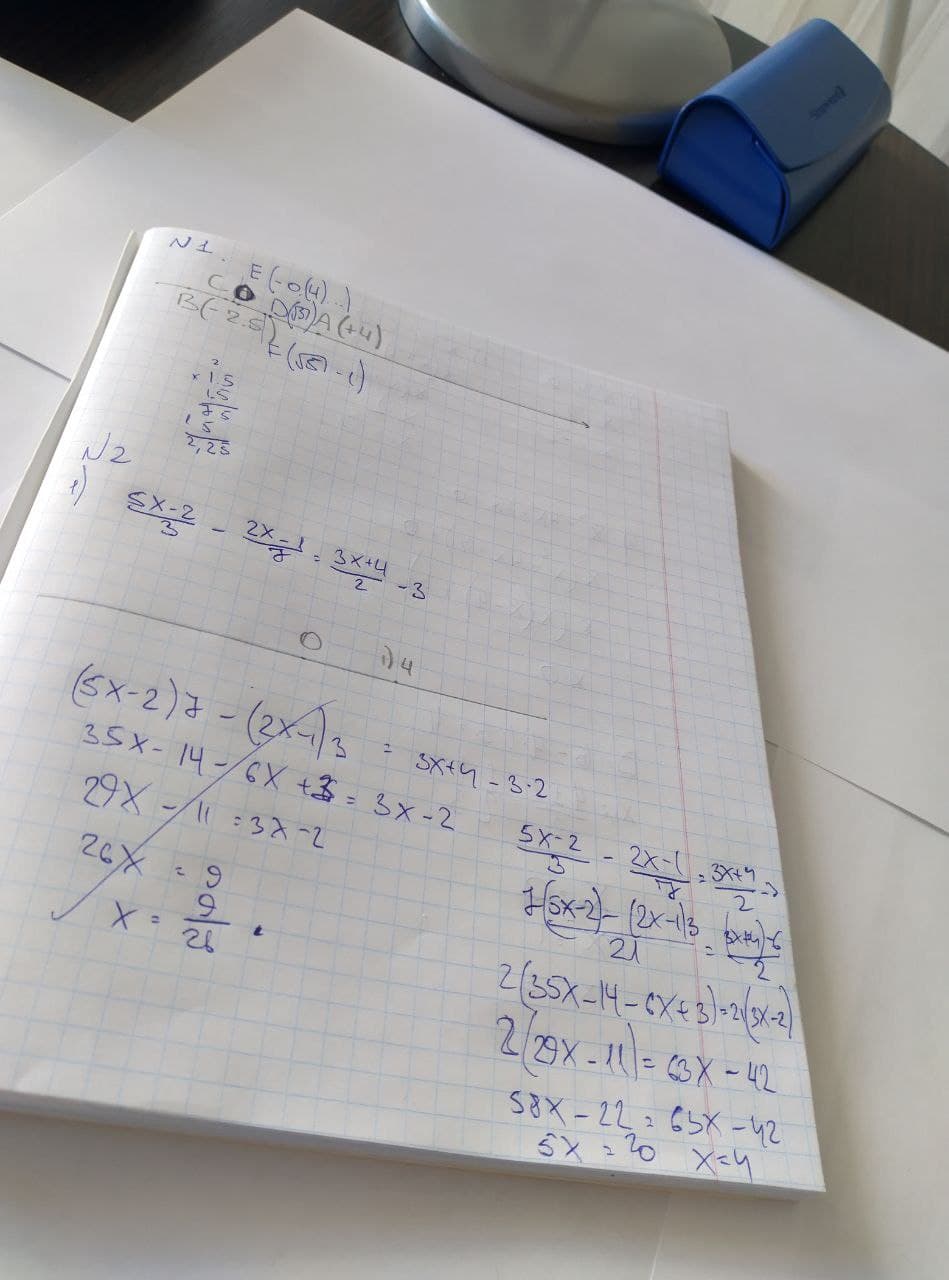 N1.
E(-0,(4)...)
C O D(√3) A(+4)
B(-2.5) F(√5-1)
2
×1.5
1.5
75
15
2,25
N2
1)
(5x-2)/3 - (2x-1)/7 = (3x+4)/2 - 3
O 1) 4
(5x-2)7 - (2x-1)3 = 3x+4-3·2
35x-14-6x+3 = 3x-2
29x-11=3x-2
26x = 9
x = 9/26.
(5x-2)/3 - (2x-1)/7 = (3x+4)/2 -3
(7(5x-2)-(2x-1)3)/21 = ((3x+4)-6)/2
2(35x-14-6x+3)=21(3x-2)
2(29x-11)=63x-42
58x-22=63x-42
5x=20 x=4